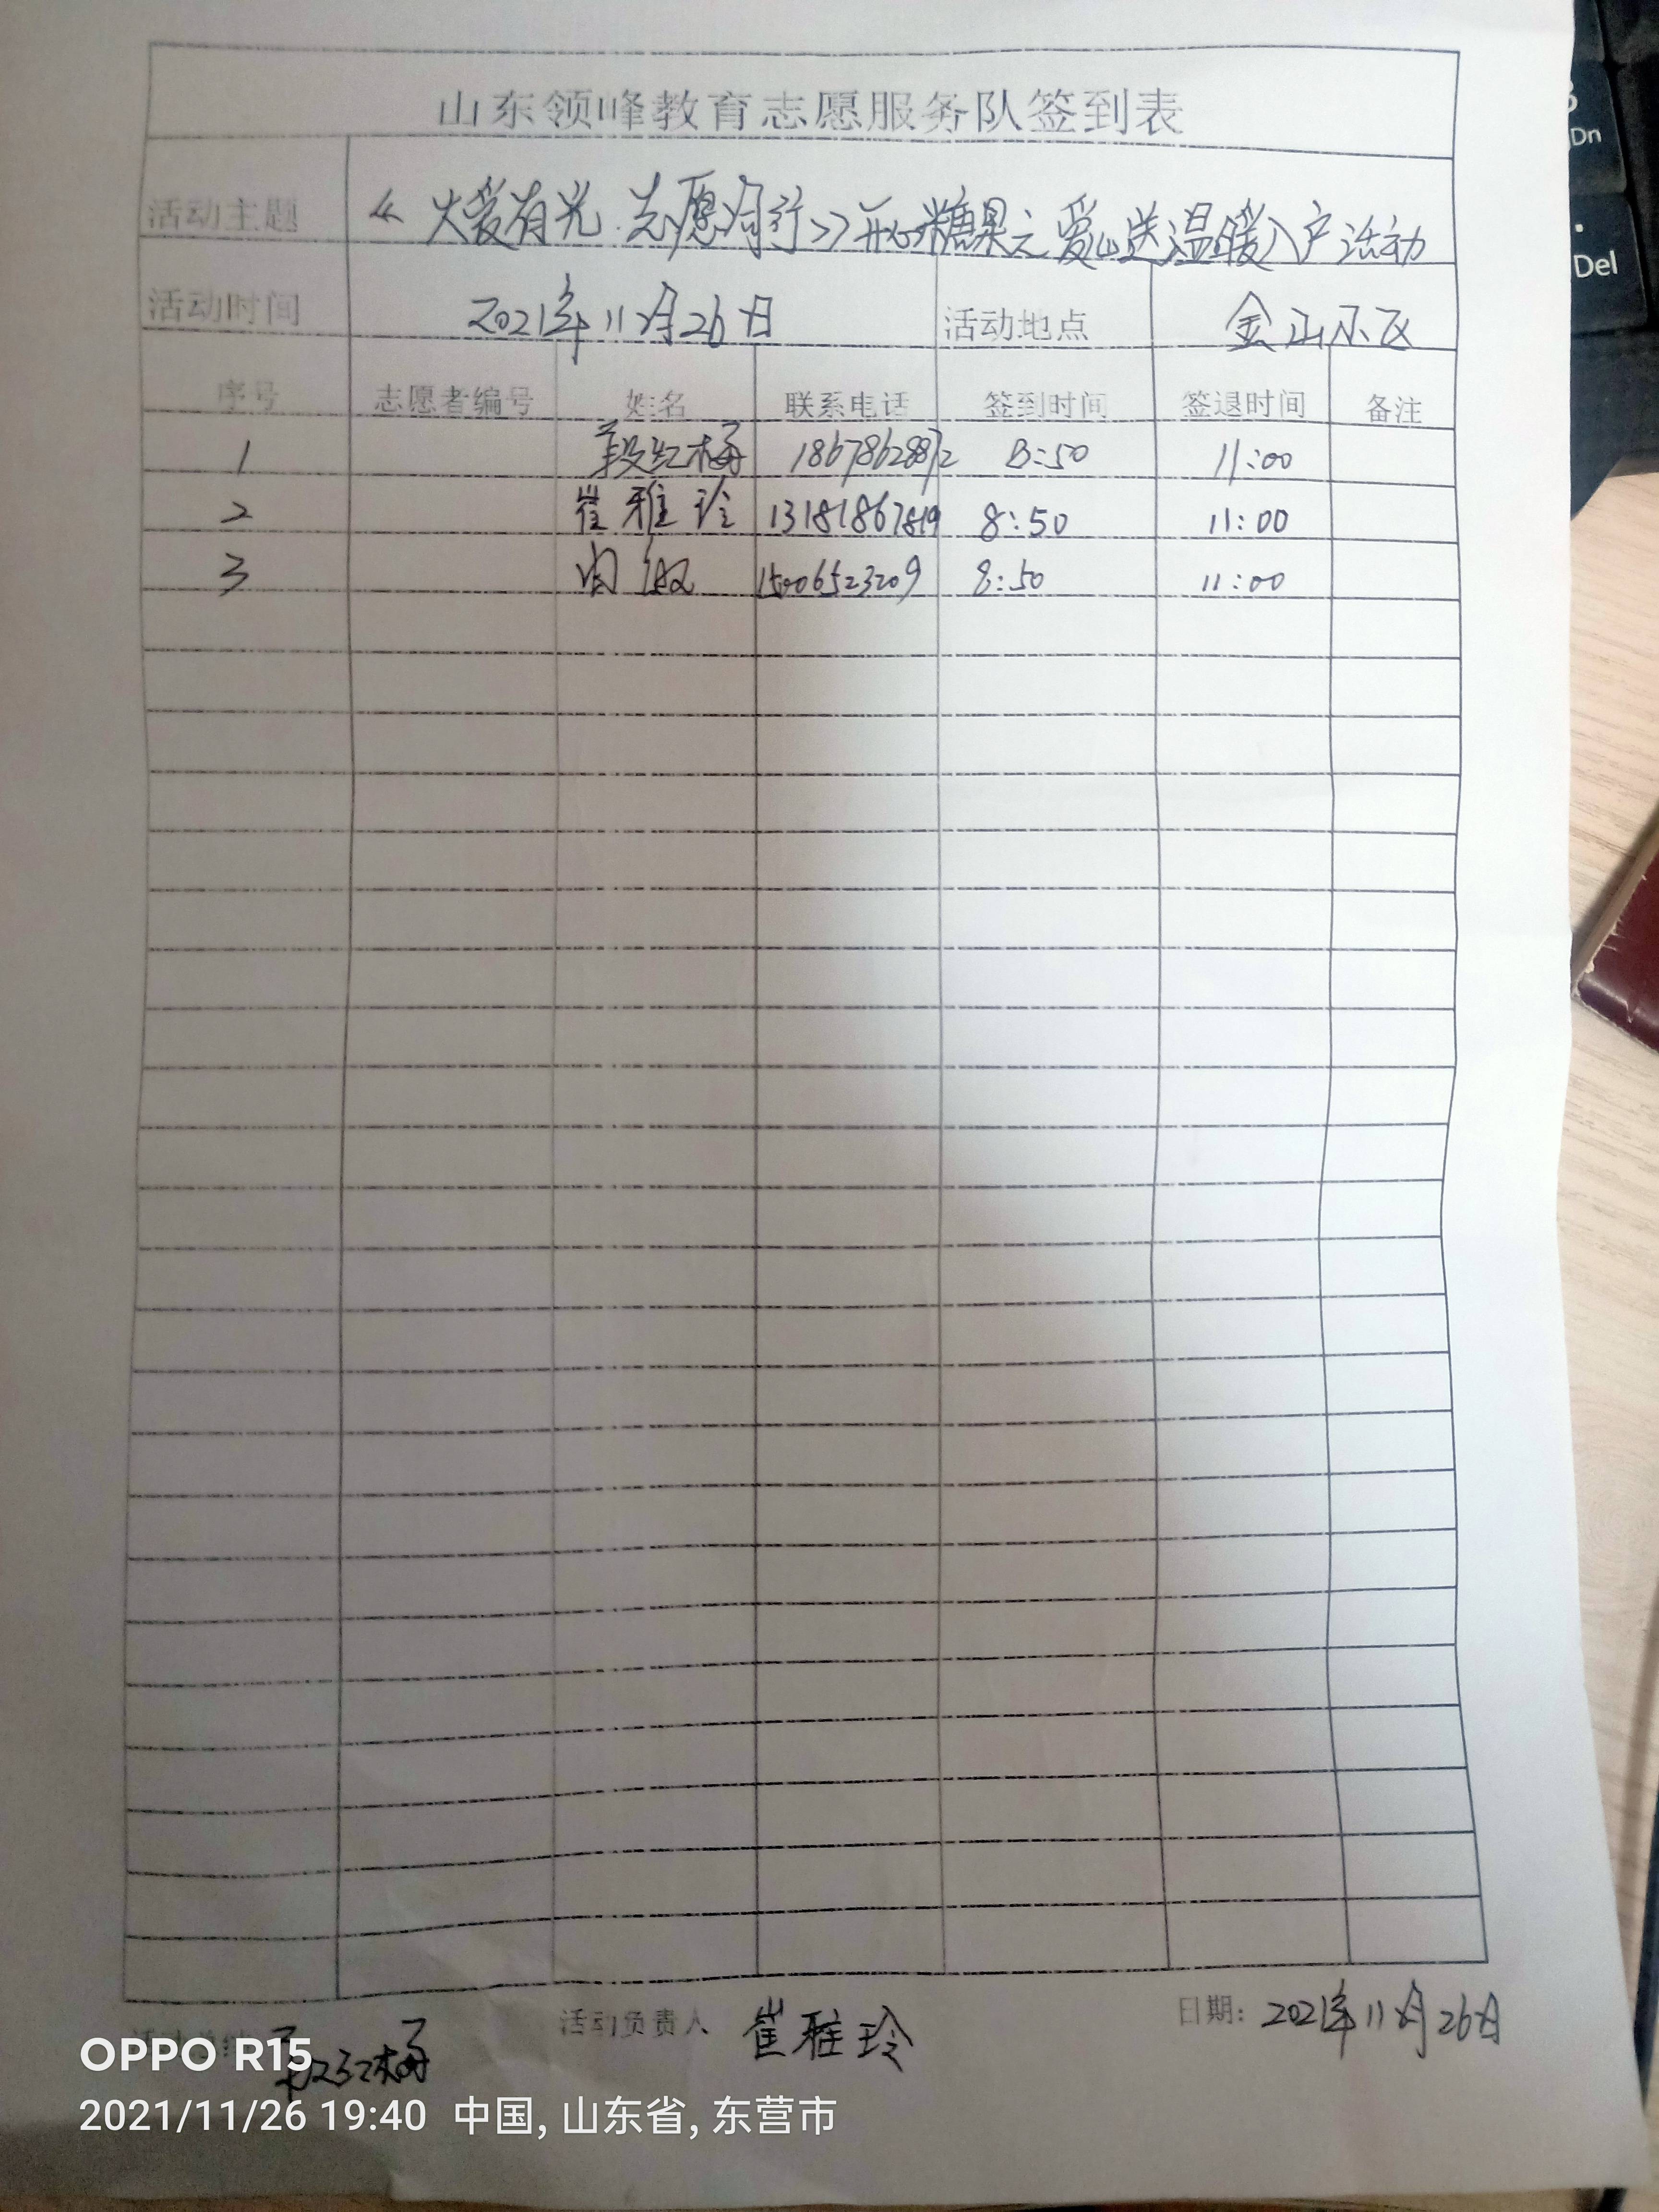 山东领峰教育志愿服务队签到表
活动主题 《大爱有光.志愿同行》开心糖果之爱心送温暖入户活动
活动时间 2021年11月26日 活动地点 金山小区
序号 志愿者编号 姓名 联系电话 签到时间 签退时间 备注
1 段红梅 18678628872 8:50 11:00
2 崔雅玲 13181867819 8:50 11:00
3 15006523209 8:50 11:00
段红梅 活动负责人 崔雅玲 日期: 2021年11月26日
OPPO R15
2021/11/26 19:40 中国, 山东省, 东营市
Dn
Del